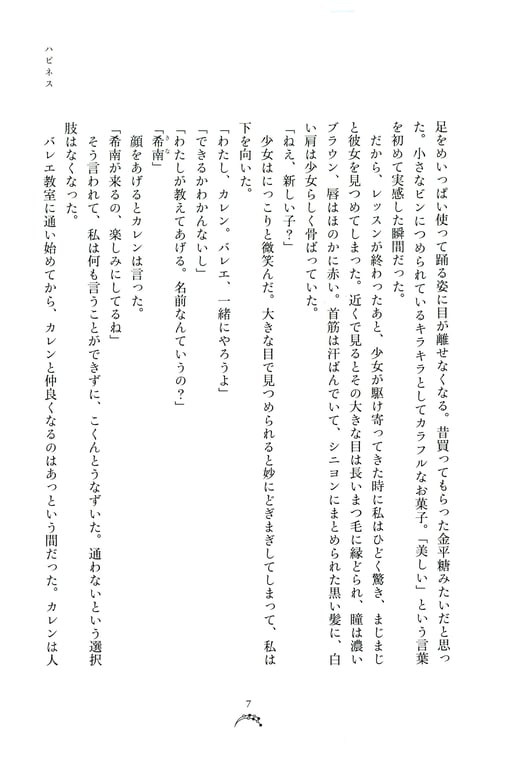 ハピネス
足をめいっぱい使って踊る姿に目が離せなくなる。昔買ってもらった金平糖みたいだと思っ
た。小さなビンにつめられているキラキラとしてカラフルなお菓子。「美しい」という言葉
を初めて実感した瞬間だった。
だから、レッスンが終わったあと、少女が駆け寄ってきた時に私はひどく驚き、まじまじ
と彼女を見つめてしまった。近くで見るとその大きな目は長いまつ毛に縁どられ、瞳は濃い
ブラウン、唇はほのかに赤い。首筋は汗ばんでいて、シニヨンにまとめられた黒い髪に、白
い肩は少女らしく骨ばっていた。
「ねえ、新しい子?」
少女はにっこりと微笑んだ。大きな目で見つめられると妙にどぎまぎしてしまって、私は
下を向いた。
「わたし、カレン。バレエ、一緒にやろうよ」
「できるかわかんないし」
「わたしが教えてあげる。名前なんていうの?」
「希南」
きな
顔をあげるとカレンは言った。
「希南が来るの、楽しみにしてるね」
そう言われて、私は何も言うことができずに、こくんとうなずいた。通わないという選択
肢はなくなった。
バレエ教室に通い始めてから、カレンと仲良くなるのはあっという間だった。カレンは人
7